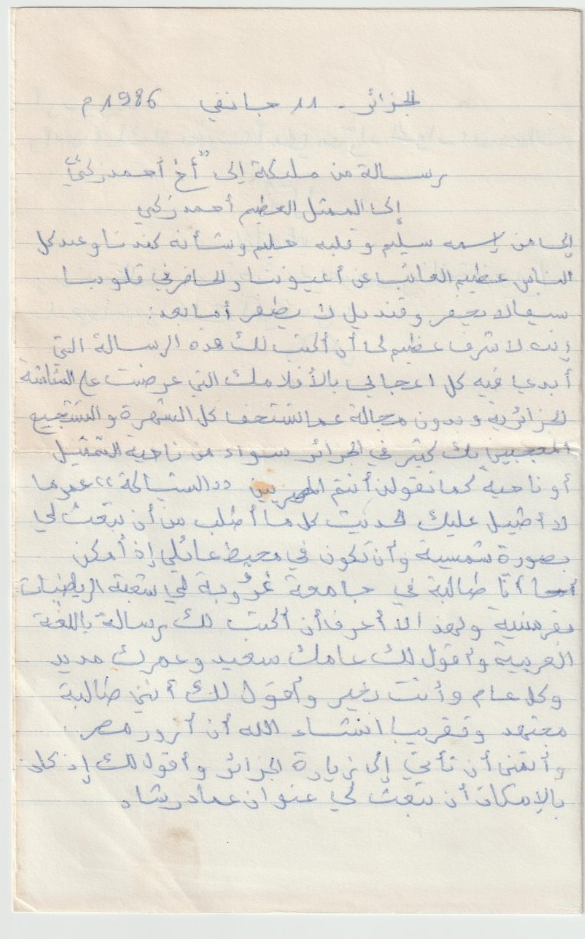 الجزائر - 11 جانفي 1986 م
رسالة من مليكة إلى "أخ أحمد زكي"
إلى الممثل العظم أحمد زكي
إلى من إسمه سليم وقلبه حليم وشأنه كندنا وعند كل
الناس عظيم الغائب عن أعيوننا والحاضر في قلوبنا
سيفا لا يجفر وقنديل لا يطفر أما بعد:
إنه لا شرف عظيم لي أن أكتب لك هذه الرسالة التي
أبدي فيه كل اعجابي بالأفلامك التي عرضت على الشاشة
الجزائرية وبدون مجالة عم تستحق كل الشهرة والتشجيع
المعجبين بك كثير في الجزائر سواء من ناحية التمثيل
أو ناحية كما تقولن أنتم المصريين "الشياكة" عموما
لا أطيل عليك الحديث كل ما أطلب من أن تبعث لي
بصورة شمسية وأن تكون في محيط عائلي إذ أمكن
أنا طالبة في جامعة في شعبة الرياضيات
مفرنسة ولهذ الا أعرف أن أكتب لك رسالة باللغة
العربية وأقول لك عامك سعيد وعمرك مديد
وكل عام وأنت بخير وأقول لك أنني طالبة
مجتهد وقريبا انشاء الله أن أزور مصر
وأتمنى أن تأتي إلى زيارة الجزائر وأقول لك إذ كان
بالإمكان أن تبعث لي عنوان عماد رشاد